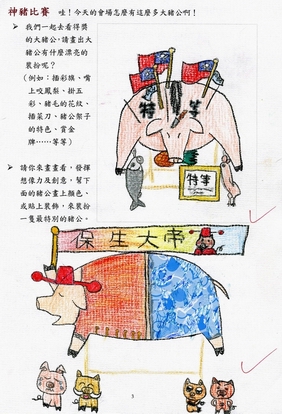 神豬比賽 哇！今天的會場怎麼有這麼多大豬公啊！
我們一起去看得獎
的大豬公，請畫出大
豬公有什麼漂亮的
裝扮呢？
（例如：插彩旗、嘴
上咬鳳梨、掛五
彩、豬毛的花紋、
插菜刀、豬公架子
的特色、賞金
牌……等等）
特等
特等
請你來畫畫看，發揮
想像力及創意，幫下
面的豬公畫上顏色、
或貼上裝飾，來裝扮
一隻最特別的豬公。
保生大帝
3